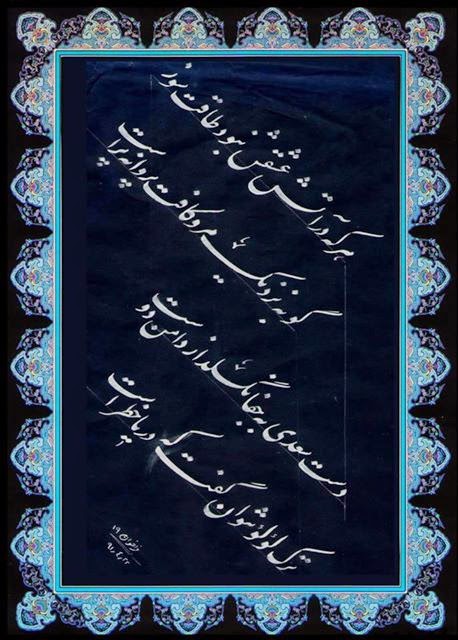 هر که در آتش عشقش نبود طاقت سوز
گو به نزدیک مرو کافت پروانه پر است
دست سعدی به جفا نگسلد از دامن دوست
ترک لؤلؤ نتوان گفت که دریا خطر است